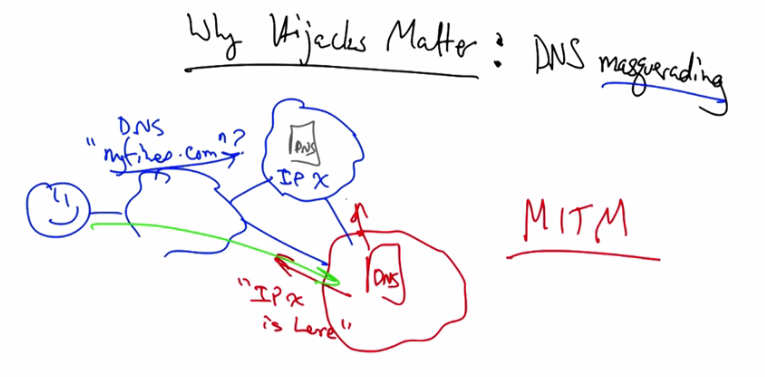 Why Hijacks Matter: DNS masquerading
DNS
"nytimes.com"?
DNS
IP X
MITM
DNS
"IP X
is here"